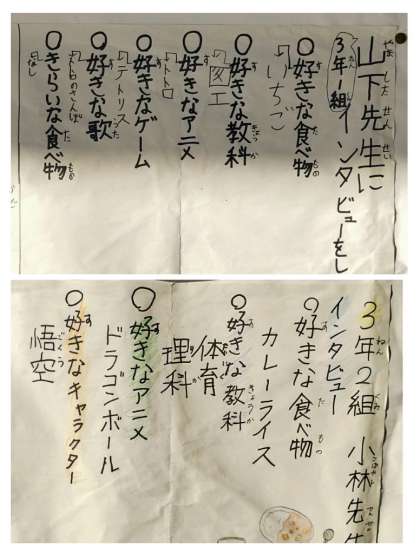 山下先生に
やました せんせい
3年1組
インタビューをし
○好きな食べ物
いちご
○好きな教科
図工
○好きなアニメ
トトロ
○好きなゲーム
テトリス
○好きな歌
○きらいな食べ物
なし
3年2組 小林先生
インタビュー
○好きな食べ物
カレーライス
○好きな教科
体育
理科
○好きなアニメ
ドラゴンボール
○好きなキャラクター
悟空